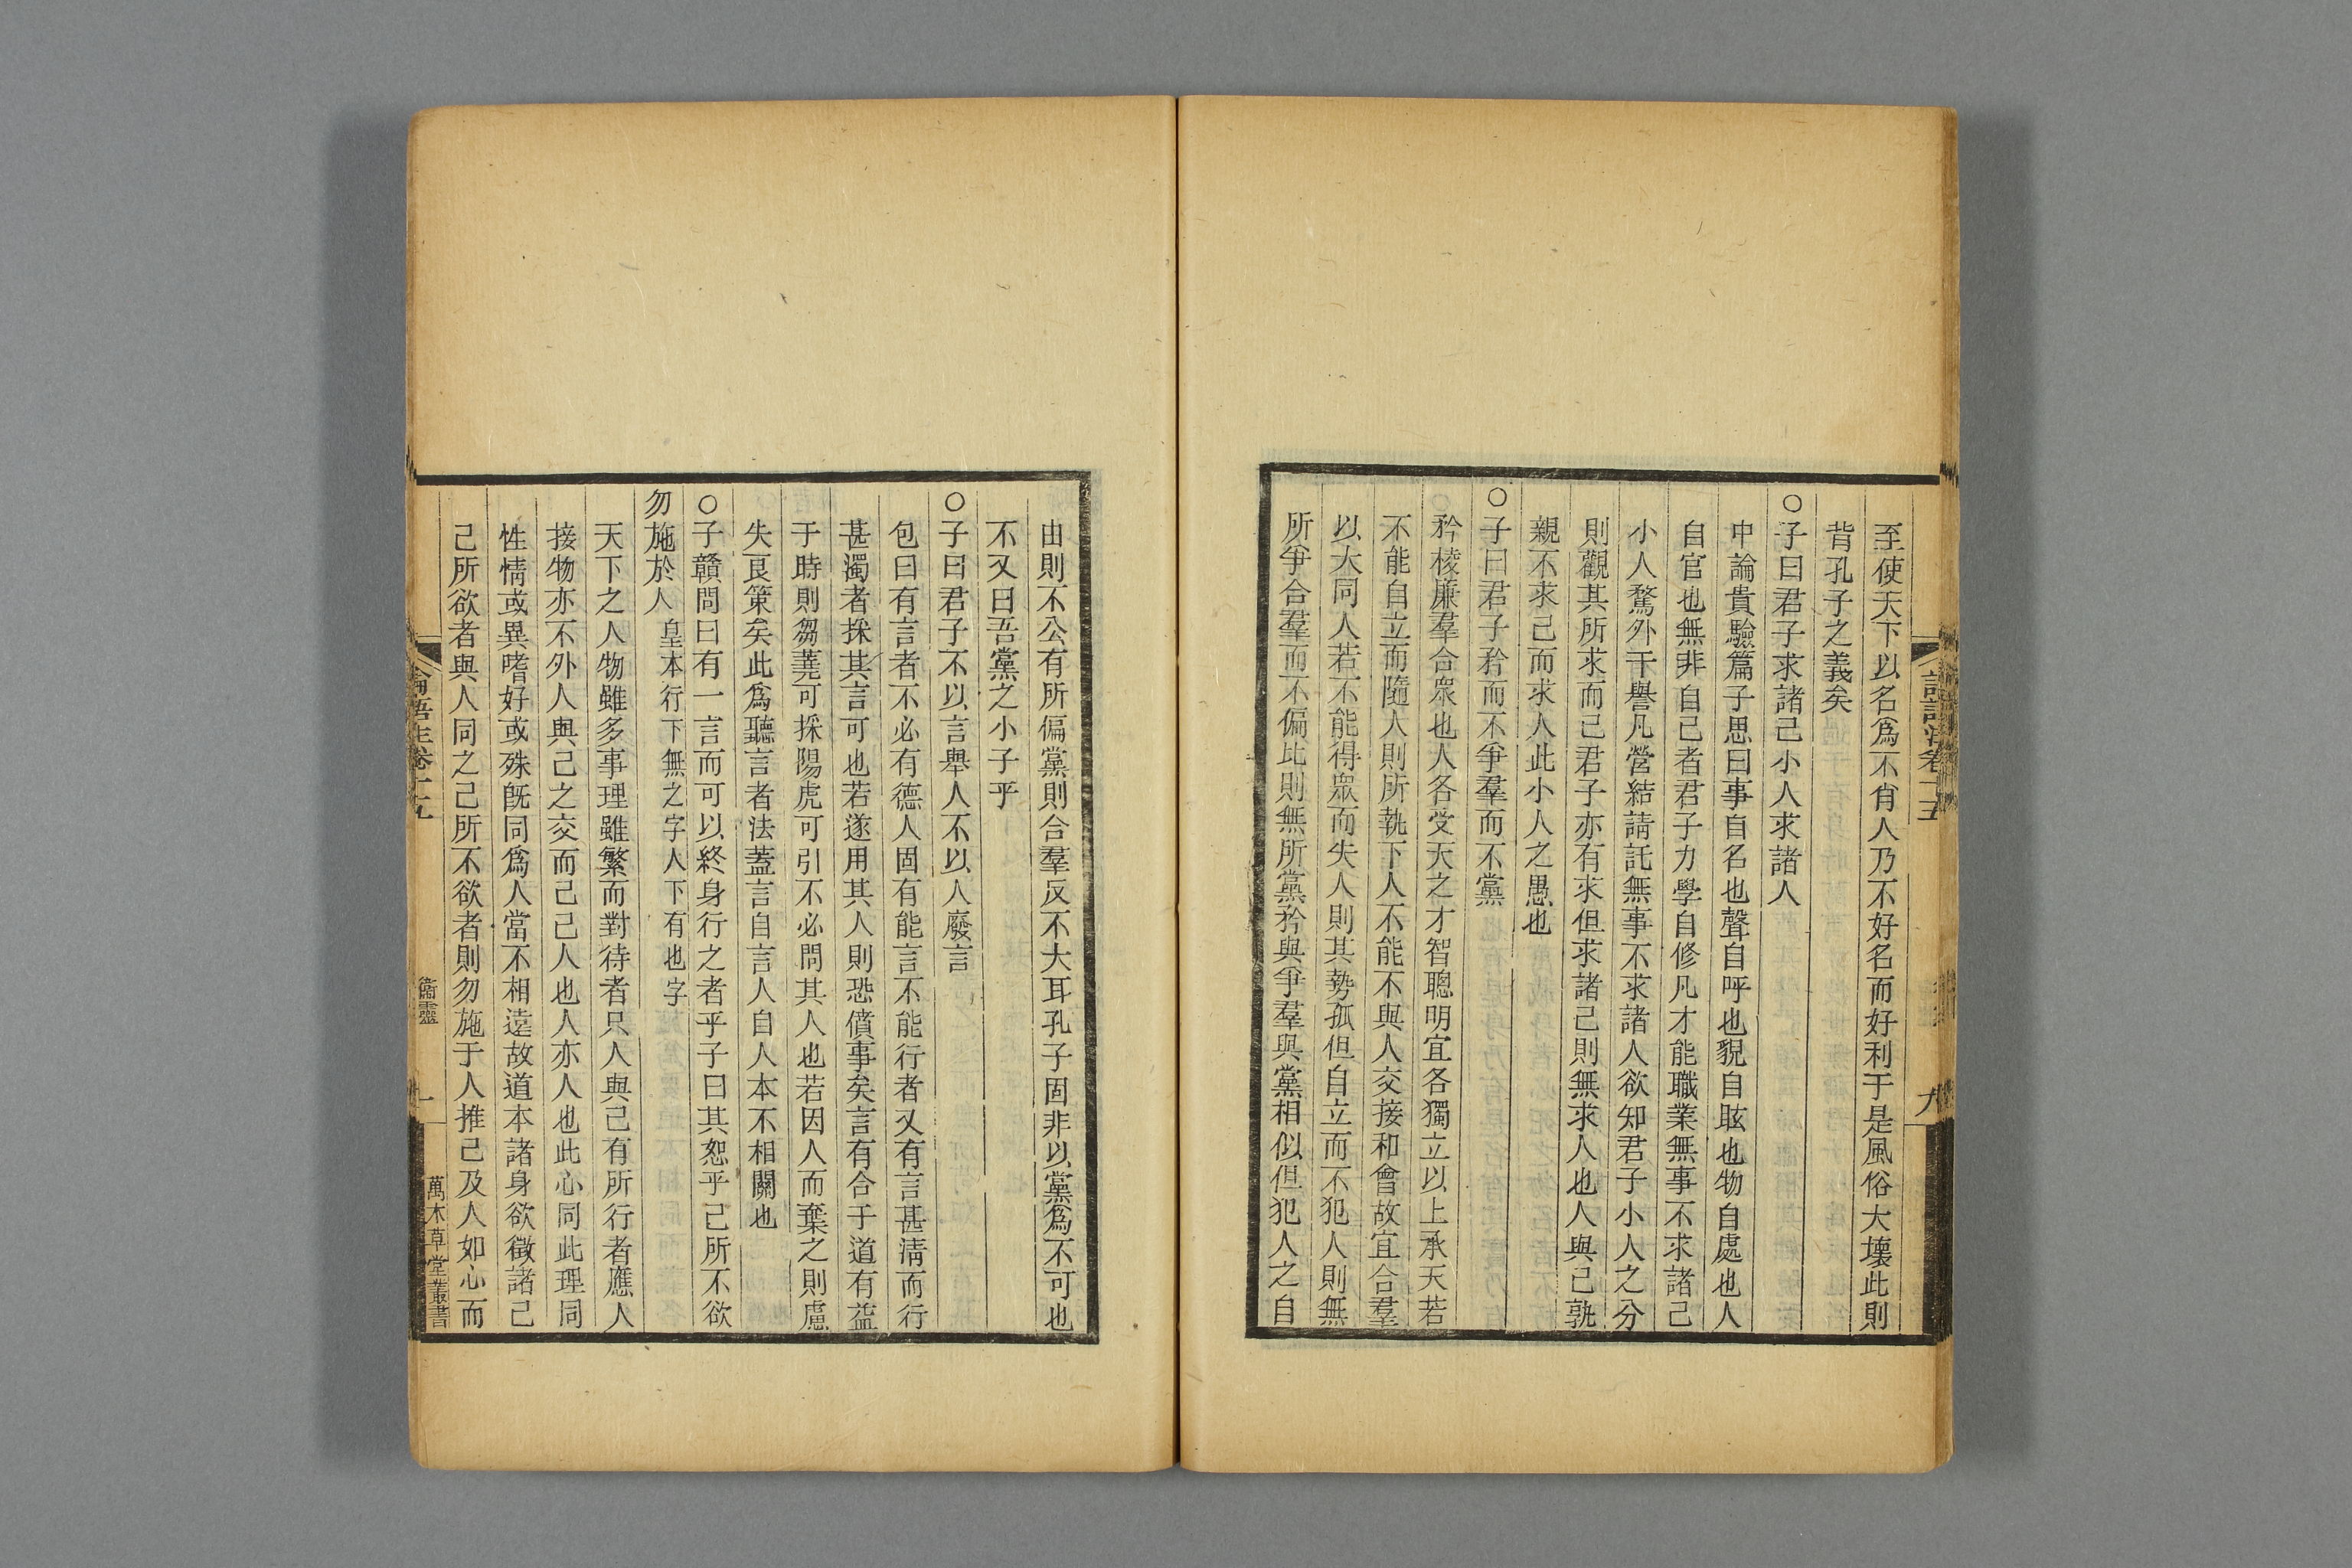 至使天下以名爲不肖人乃不好名而好利于是風俗大壞此則
背孔子之義矣
○子曰君子求諸己小人求諸人
中論貴驗篇子思曰事自名也聲自呼也貌自眩也物自處也人
自官也無非自己者君子力學自修凡才能職業無事不求諸己
小人騖外干譽凡營結請託無事不求諸人欲知君子小人之分
則觀其所求而已君子亦有求但求諸己則無求人也人與己孰
親不求己而求人此小人之愚也
○子曰君子矜而不爭羣而不黨
矜棱廉羣合衆也人各受天之才智聰明宜各獨立以上承天若
不能自立而隨人則所執下人不能不與人交接和會故宜合羣
以大同人若不能得眾而失人則其勢孤但自立而不犯人則無
所爭合羣而不偏比則無所黨矜與爭羣與黨相似但犯人之自
由則不公有所偏黨則合羣反不大耳孔子固非以黨爲不可也
不又曰吾黨之小子乎
○子曰君子不以言舉人不以人廢言
包曰有言者不必有德人固有能言不能行者又有言甚淸而行
甚濁者採其言可也若遂用其人則恐僨事矣言有合于道有益
于時則芻蕘可採陽虎可引不必問其人也若因人而棄之則慮
失良策矣此爲聽言者法蓋言自言人自人本不相關也
○子贛問曰有一言而可以終身行之者乎子曰其恕乎己所不欲
勿施於人 皇本行下無之字人下有也字
天下之人物雖多事理雖繁而對待者只人與己有所行者應人
接物亦不外人與己之交而己己人也人亦人也此心同此理同
性情或異嗜好或殊既同爲人當不相遠故道本諸身欲徵諸己
己所欲者與人同之己所不欲者則勿施于人推己及人如心而
論語注卷十五
衞靈
萬木草堂叢書